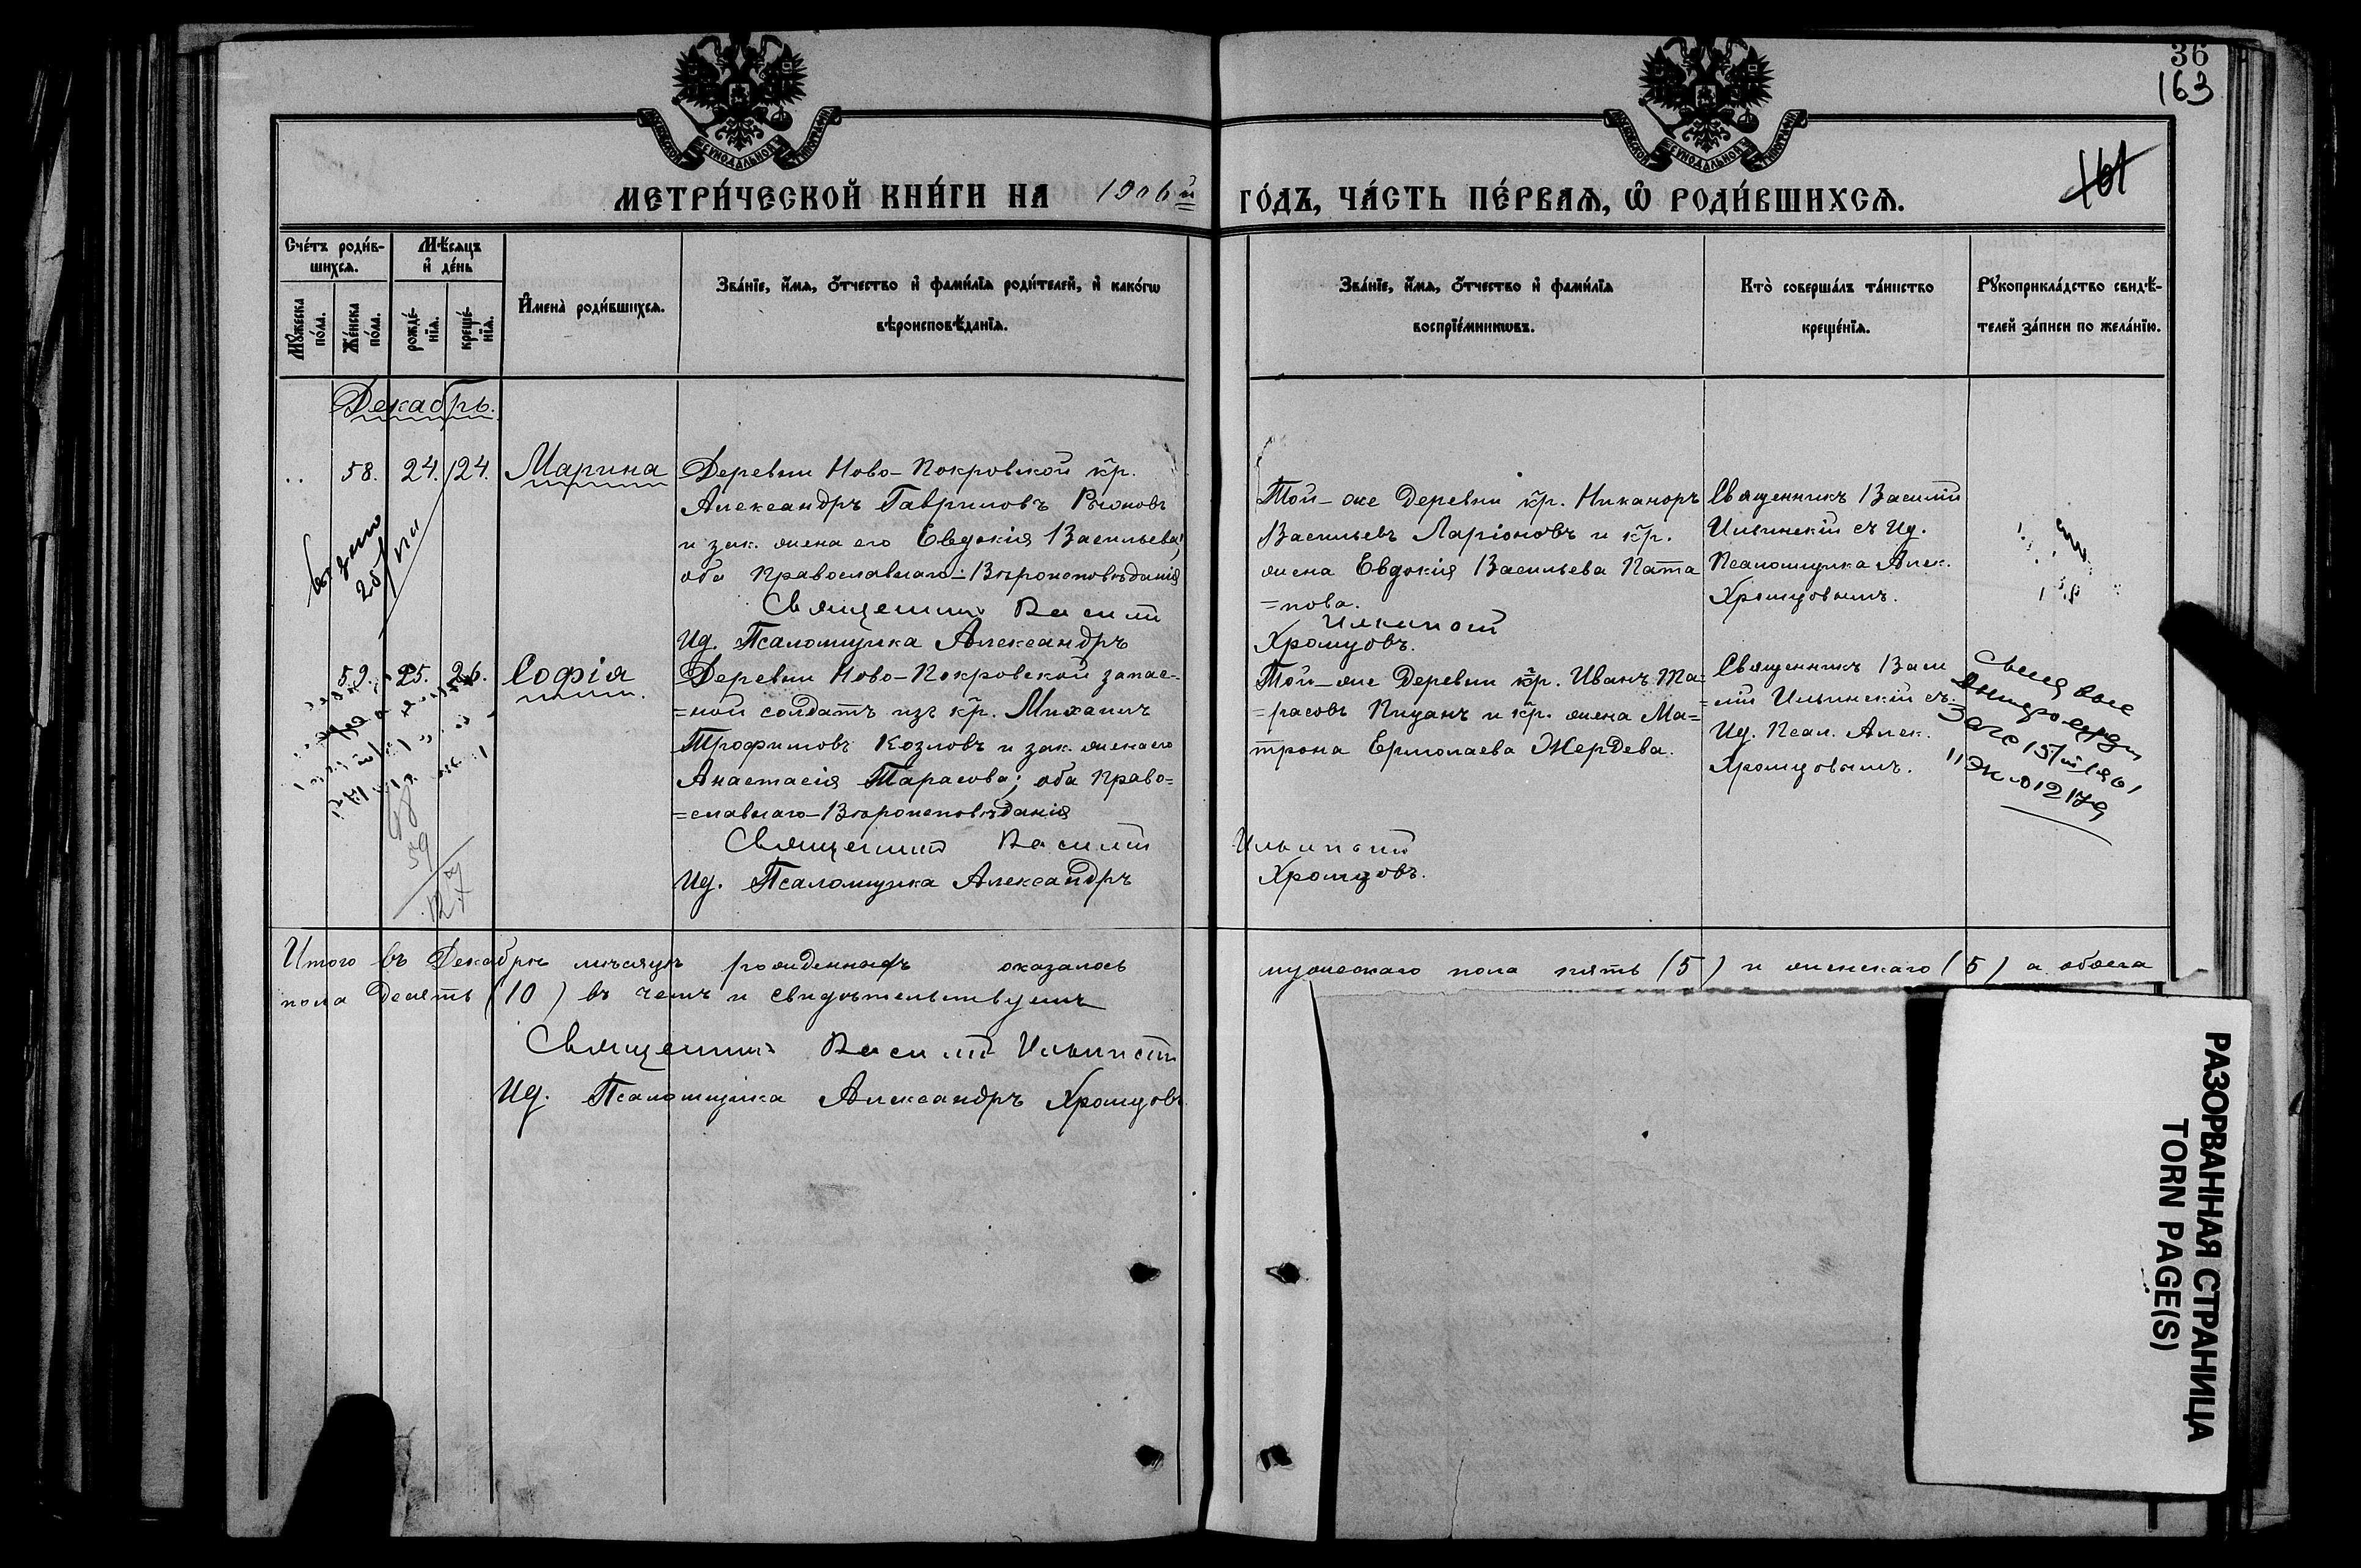 36
163
161
МЕТРИ́ЧЕСКОЙ КНИ́ГИ НА 1906й ГО́ДЪ, ЧА́СТЬ ПЕ́РВАѦ, Ѡ҆ РОДИ́ВШИХСѦ.
Сче́тъ роди́в-
шихсѧ.
Мꙋ́жеска по́ла.
Же́нска по́ла.
Мѣ́сѧцъ
и҆ де́нь
рожде́-
нїѧ.
креще́-
нїѧ.
И҆мена̀ роди́вшихсѧ.
Зва́нїе, и҆́мѧ, ѻ҆́тчество и҆ фами́лїѧ роди́телей, и҆ како́гѡ
вѣроисповѣ́данїѧ.
Зва́нїе, и҆́мѧ, ѻ҆́тчество и҆ фами́лїѧ
воспрїе́мникѡвъ.
Кто̀ соверша́лъ та́инство
креще́нїѧ.
Рꙋкоприкла́дство свидѣ́-
телей за́писи по жела́нїю.
Декабрь.
58. 24. 24. Марина
Деревни Ново-Покровской кр.
Александръ Гавриловъ
и зак. жена его Евдокія Васильева;
оба Православнаго-Вѣроисповѣданія
Священникъ Василій
Ид. Псаломщика Александръ
Той-же Деревни кр. Никаноръ
Васильевъ Ларіоновъ и кр.
жена Евдокія Васильева Пата
=пова.
Ильинскій
Хромцовъ.
Священникъ Василій
Ильинскій съ Ид.
Псаломщика Алек.
Хромцовымъ.
59. 25. 26. Софія
Деревни Ново-Покровской запас-
=ной солдатъ изъ кр. Михаилъ
Трофимовъ Козловъ и зак. жена его
Анастасія Тарасова; оба Право-
=славнаго-Вѣроисповѣданія
Священникъ Василій
Ид. Псаломщика Александръ
Той-же Деревни кр. Иванъ Та-
=расовъ Пицанъ и кр. жена Ма-
трона Ермолаева Жердева.
Ильинскій
Хромцовъ.
Священникъ Васи
=лій Ильинскій съ
Ид. Псал. Алек.
Хромцовымъ.
59
Итого въ Декабрѣ мѣсяцѣ рожденныхъ оказалось мужескаго пола пять (5) и женскаго (5) а обоего
пола десять (10) въ чемъ и свидѣтельствуемъ
Священникъ Василій Ильинскій
Ид. Псаломщика Александръ Хромцовъ
РАЗОРВАННАЯ СТРАНИЦА
TORN PAGE(S)